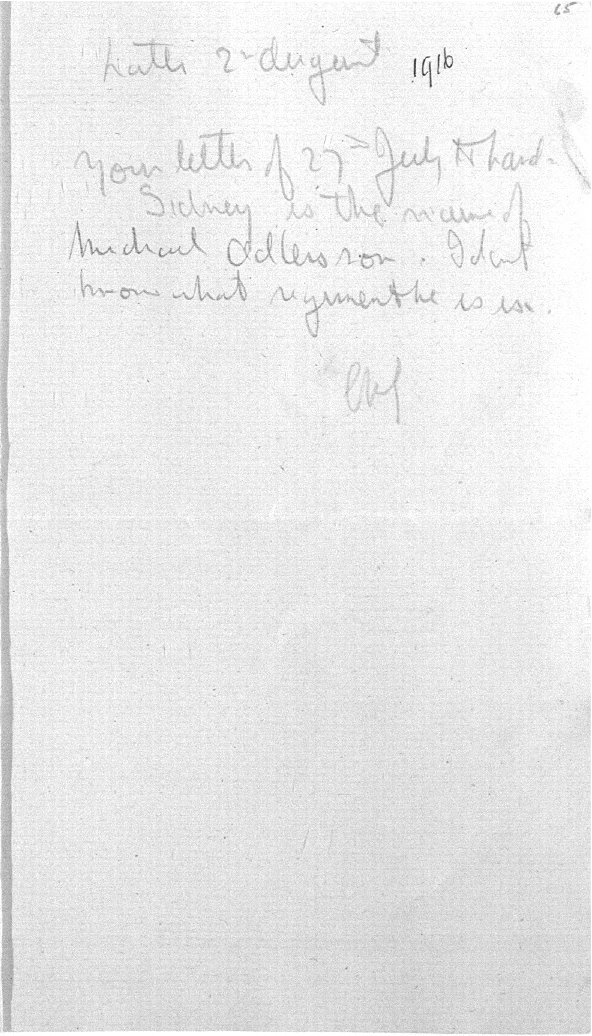 65
Later 2nd August 1916
Your letter of 27th July to hand.
Sidney is the name of
Michael Adlers son. I dont
know what regiment he is in.